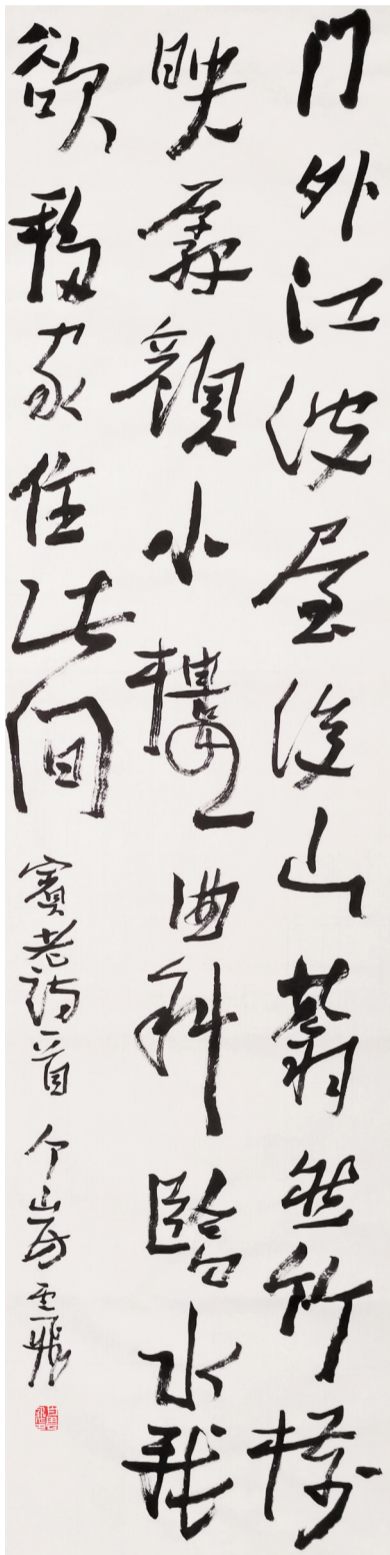 門外江波屋後山蓊然竹樹
映孱顏小樓一曲斜臨水我
欲移家住此間
賓老詩一首 个山房